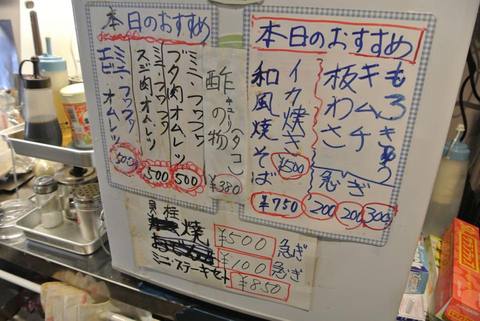 本日のおすすめ
もろきゅう 300
キムチ 200
板わさ 200
急ぎ
イカ焼き ¥500
和風焼そば ¥750
本日のおすすめ
ミニ・フワフワ
ブタ肉オムレツ 500
ミニ・フワフワ
スジ肉オムレツ 500
ミニ・フワフワ
エビ・オムレツ 500
酢の物 ¥380
焼 ¥500 急ぎ
¥100 急ぎ
ミニ・ステーキセット ¥850